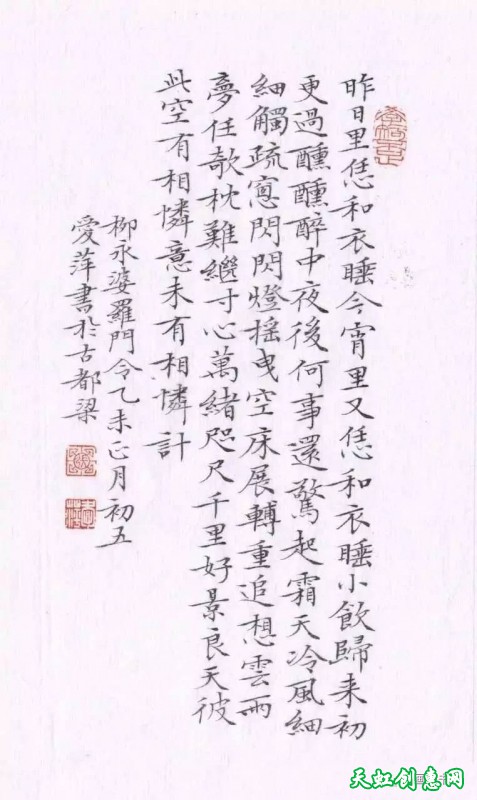 昨日里恁和衣睡今宵里又恁和衣睡小飲歸来初
更過醺醺醉中夜後何事還驚起霜天冷風細
細觸疏窓閃閃燈摇曳空床展轉重追想雲雨
夢任欹枕難繼寸心萬緒咫尺千里好景良天彼
此空有相憐意未有相憐計
柳永婆羅門令乙未正月初五
愛萍書於古都梁
天虹创意网